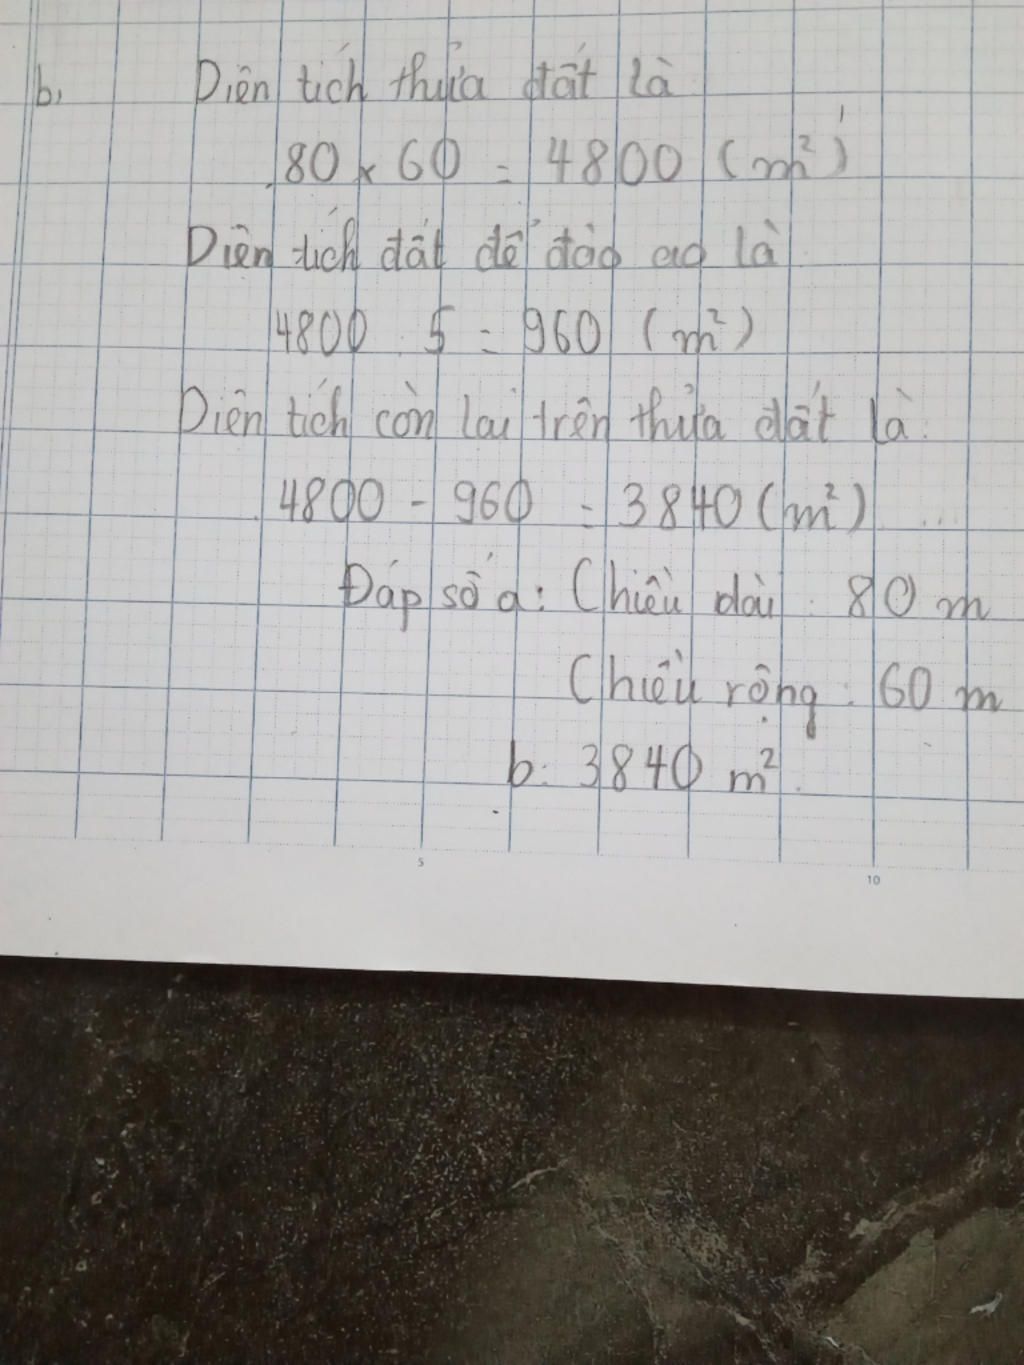 b, Diện tích thửa đất là
80 x 60 = 4800 (m²)
Diện tích đất để đào ao là
4800 : 5 = 960 (m²)
Diện tích còn lại trên thửa đất là:
4800 - 960 = 3840 (m²)
Đáp số a: Chiều dài : 80 m
Chiều rộng : 60 m
b: 3840 m².
5 10